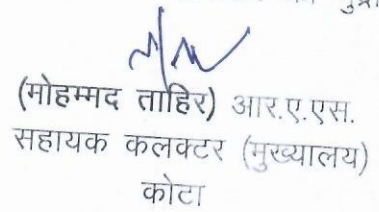 (मोहम्मद ताहिर) आर.ए.एस.
सहायक कलक्टर (मुख्यालय)
कोटा